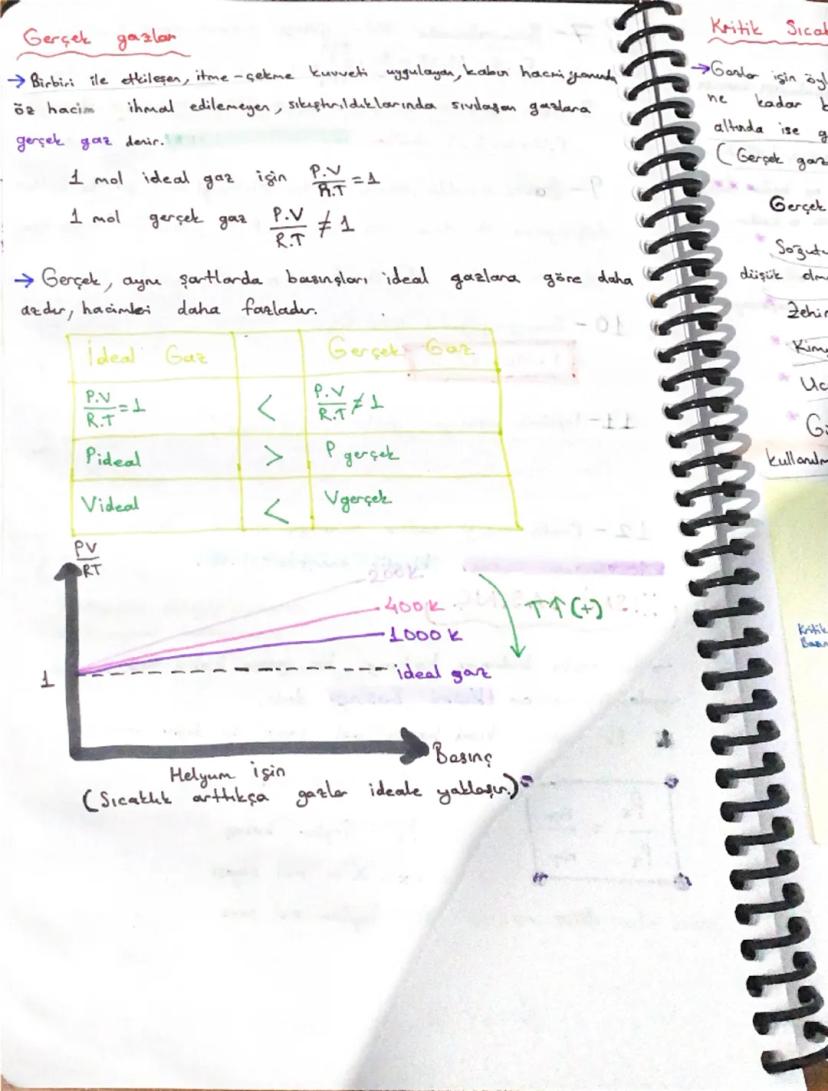 Gerçek gazlar
→ Birbiri ile etkileşen, itme-çekme kuvveti uygulayan, kabın hacmi yanında
öz hacim ihmal edilemeyen, sıkıştırıldıklarında sıvılaşan gazlara
gerçek gaz denir.
1 mol ideal gaz için P.V/R.T = 1
1 mol gerçek gaz P.V/R.T ≠ 1
→ Gerçek, aynı şartlarda basınçları ideal gazlara göre daha
azdır, hacimleri daha fazladır.
İdeal Gaz Gerçek Gaz
P.V/R.T = 1 < P.V/R.T ≠ 1
Pideal > P gerçek
Videal < Vgerçek
PV/RT
200k
400k
1000k
↑↑(+)
1
ideal gaz
Basınç
Helyum için
(Sıcaklık arttıkça gazlar ideale yaklaşır.)
Kritik Sıcak
→ Gazlar için öyl
ne kadar b
altında ise g
(Gerçek gaz
Gerçek
* Soğutu
düşük olm
* Zehir
* Kimy
* Uc
* G
kullanılm
Kritik
Basın
7-
9-
10-
11-
12-